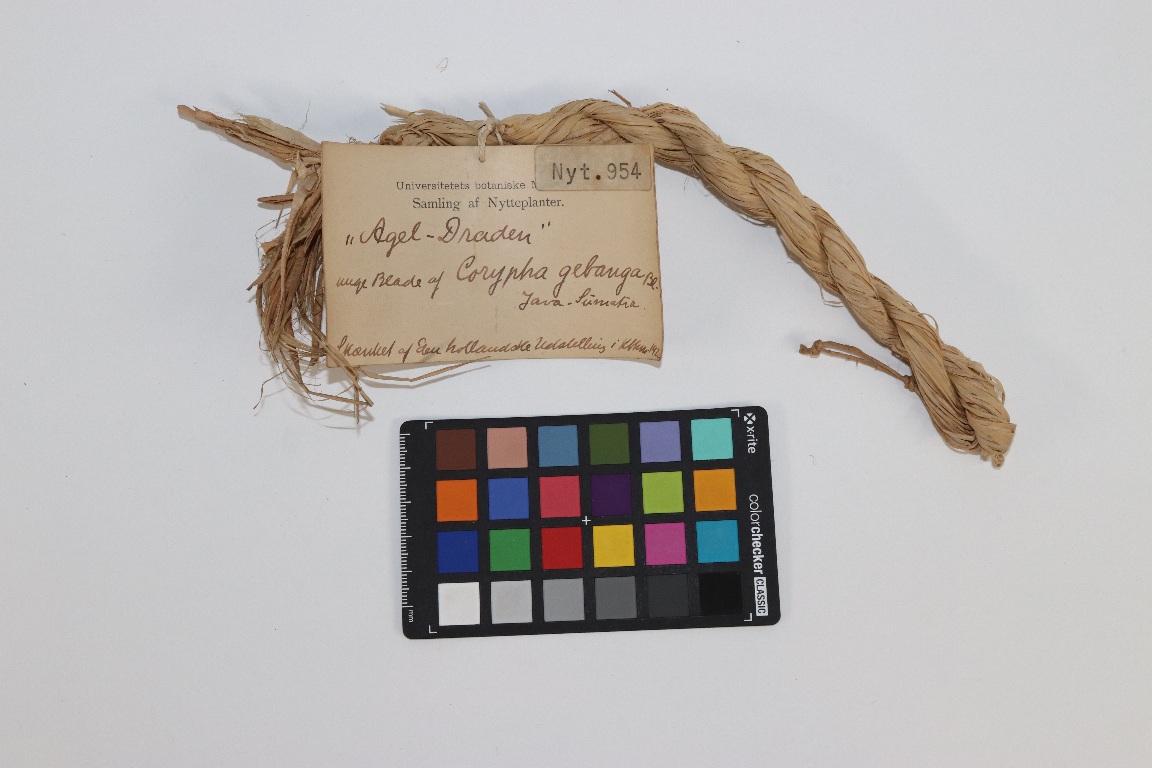 Universitetets botaniske
Nyt.954
Samling af Nytteplanter.
„Agel-Draden"
unge Blade af Corypha gebanga Bl.
Java-Sumatra.
Skænket af Den hollandske Udstilling i
x-rite
colorchecker CLASSIC
mm